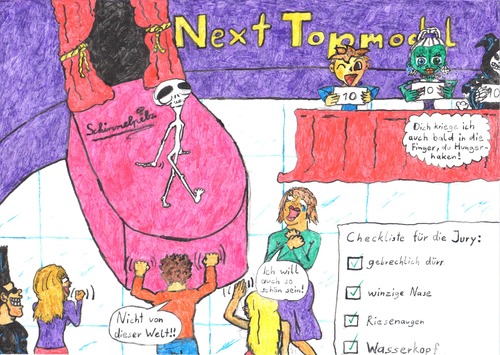 Next Topmodel
10
10
10
Schimmelpilz
Dich kriege ich
auch bald in die
Finger, du Hunger-
haken!
Ich will
auch so
schön sein!
Nicht von
dieser Welt!!
Checkliste für die Jury:
gebrechlich dürr
winzige Nase
Riesenaugen
Wasserkopf